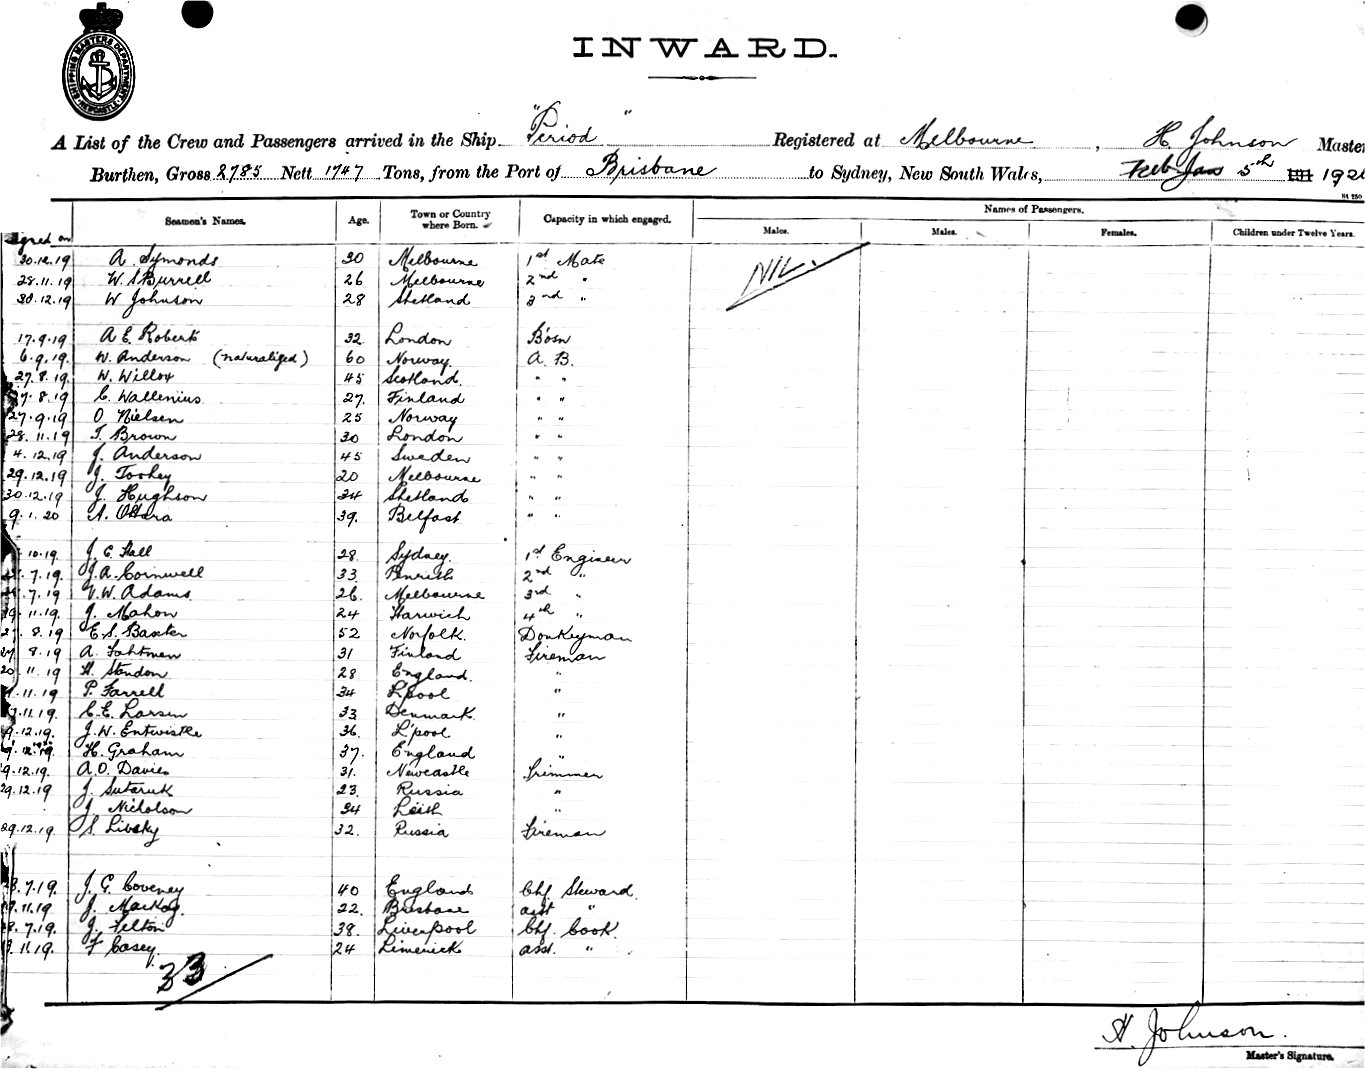 SHIPPING MASTERS DEPARTMENT NEWCASTLE
INWARD.
A List of the Crew and Passengers arrived in the Ship "Period" Registered at Melbourne, H. Johnson Master
Burthen, Gross 2785 Nett 1747 Tons, from the Port of Brisbane to Sydney, New South Wales, Feb 5th 192
Seamen's Names. Age. Town or Country where Born. Capacity in which engaged. Names of Passengers.
Males. Males. Females. Children under Twelve Years.
signed on
30.12.19 A. Symonds 30 Melbourne 1st Mate NIL.
28.11.19 W. S Burrell 26 Melbourne 2nd "
30.12.19 W Johnson 28 Shetland 3nd "
17.9.19 A E. Roberts 32 London Bosn
6.9.19. W. Anderson (naturalized) 60 Norway A. B.
27.8.19 W. Willox 45 Scotland " "
27.8.19 C. Wallenius 27. Finland " "
27.9.19 O. Nielsen 25 Norway " "
28.11.19 T. Brown 30 London " "
4.12.19 J. Anderson 45 Sweden " "
29.12.19 J. Toohey 20 Melbourne " "
30.12.19 J. Hughson 24 Shetland " "
9.1.20 A. O'Hara 39. Belfast " "
10.19. J. C. Hall 28. Sydney. 1st Engineer
7.19. J. A. Cornwell 33 Penrith 2nd "
7.19 V. W. Adams 26. Melbourne 3rd "
19.11.19. J. Mahon 24 Harwich 4th "
27.8.19. E. S. Baxter 52 Norfolk. Donkeyman
27 8.19 A. Fahtmen 31 Finland Fireman
20 11.19 H. Standon 28 England. "
11.19 P. Farrell 34 L'pool "
11.19. C. E. Larsen 33 Denmark. "
9.12.19. J. W. Entwistle 36. L'pool "
9.12.19. H. Graham 37. England "
9.12.19. A. O. Davies 31. Newcastle Trimmer
29.12.19 J. Sutaruk 23. Russia "
J. Nicholson 34 Leith "
29.12.19. S Libsky 32. Russia Fireman
28.7.19. J. G. Coveney 40 England Chf. Steward.
11.19 J. Mackay. 22. Brisbane asst "
28.7.19. J. Felton 38. Liverpool Chf. Cook.
11.19. F Casey. 24 Limerick asst. "
33
H. Johnson.
Master's Signature.